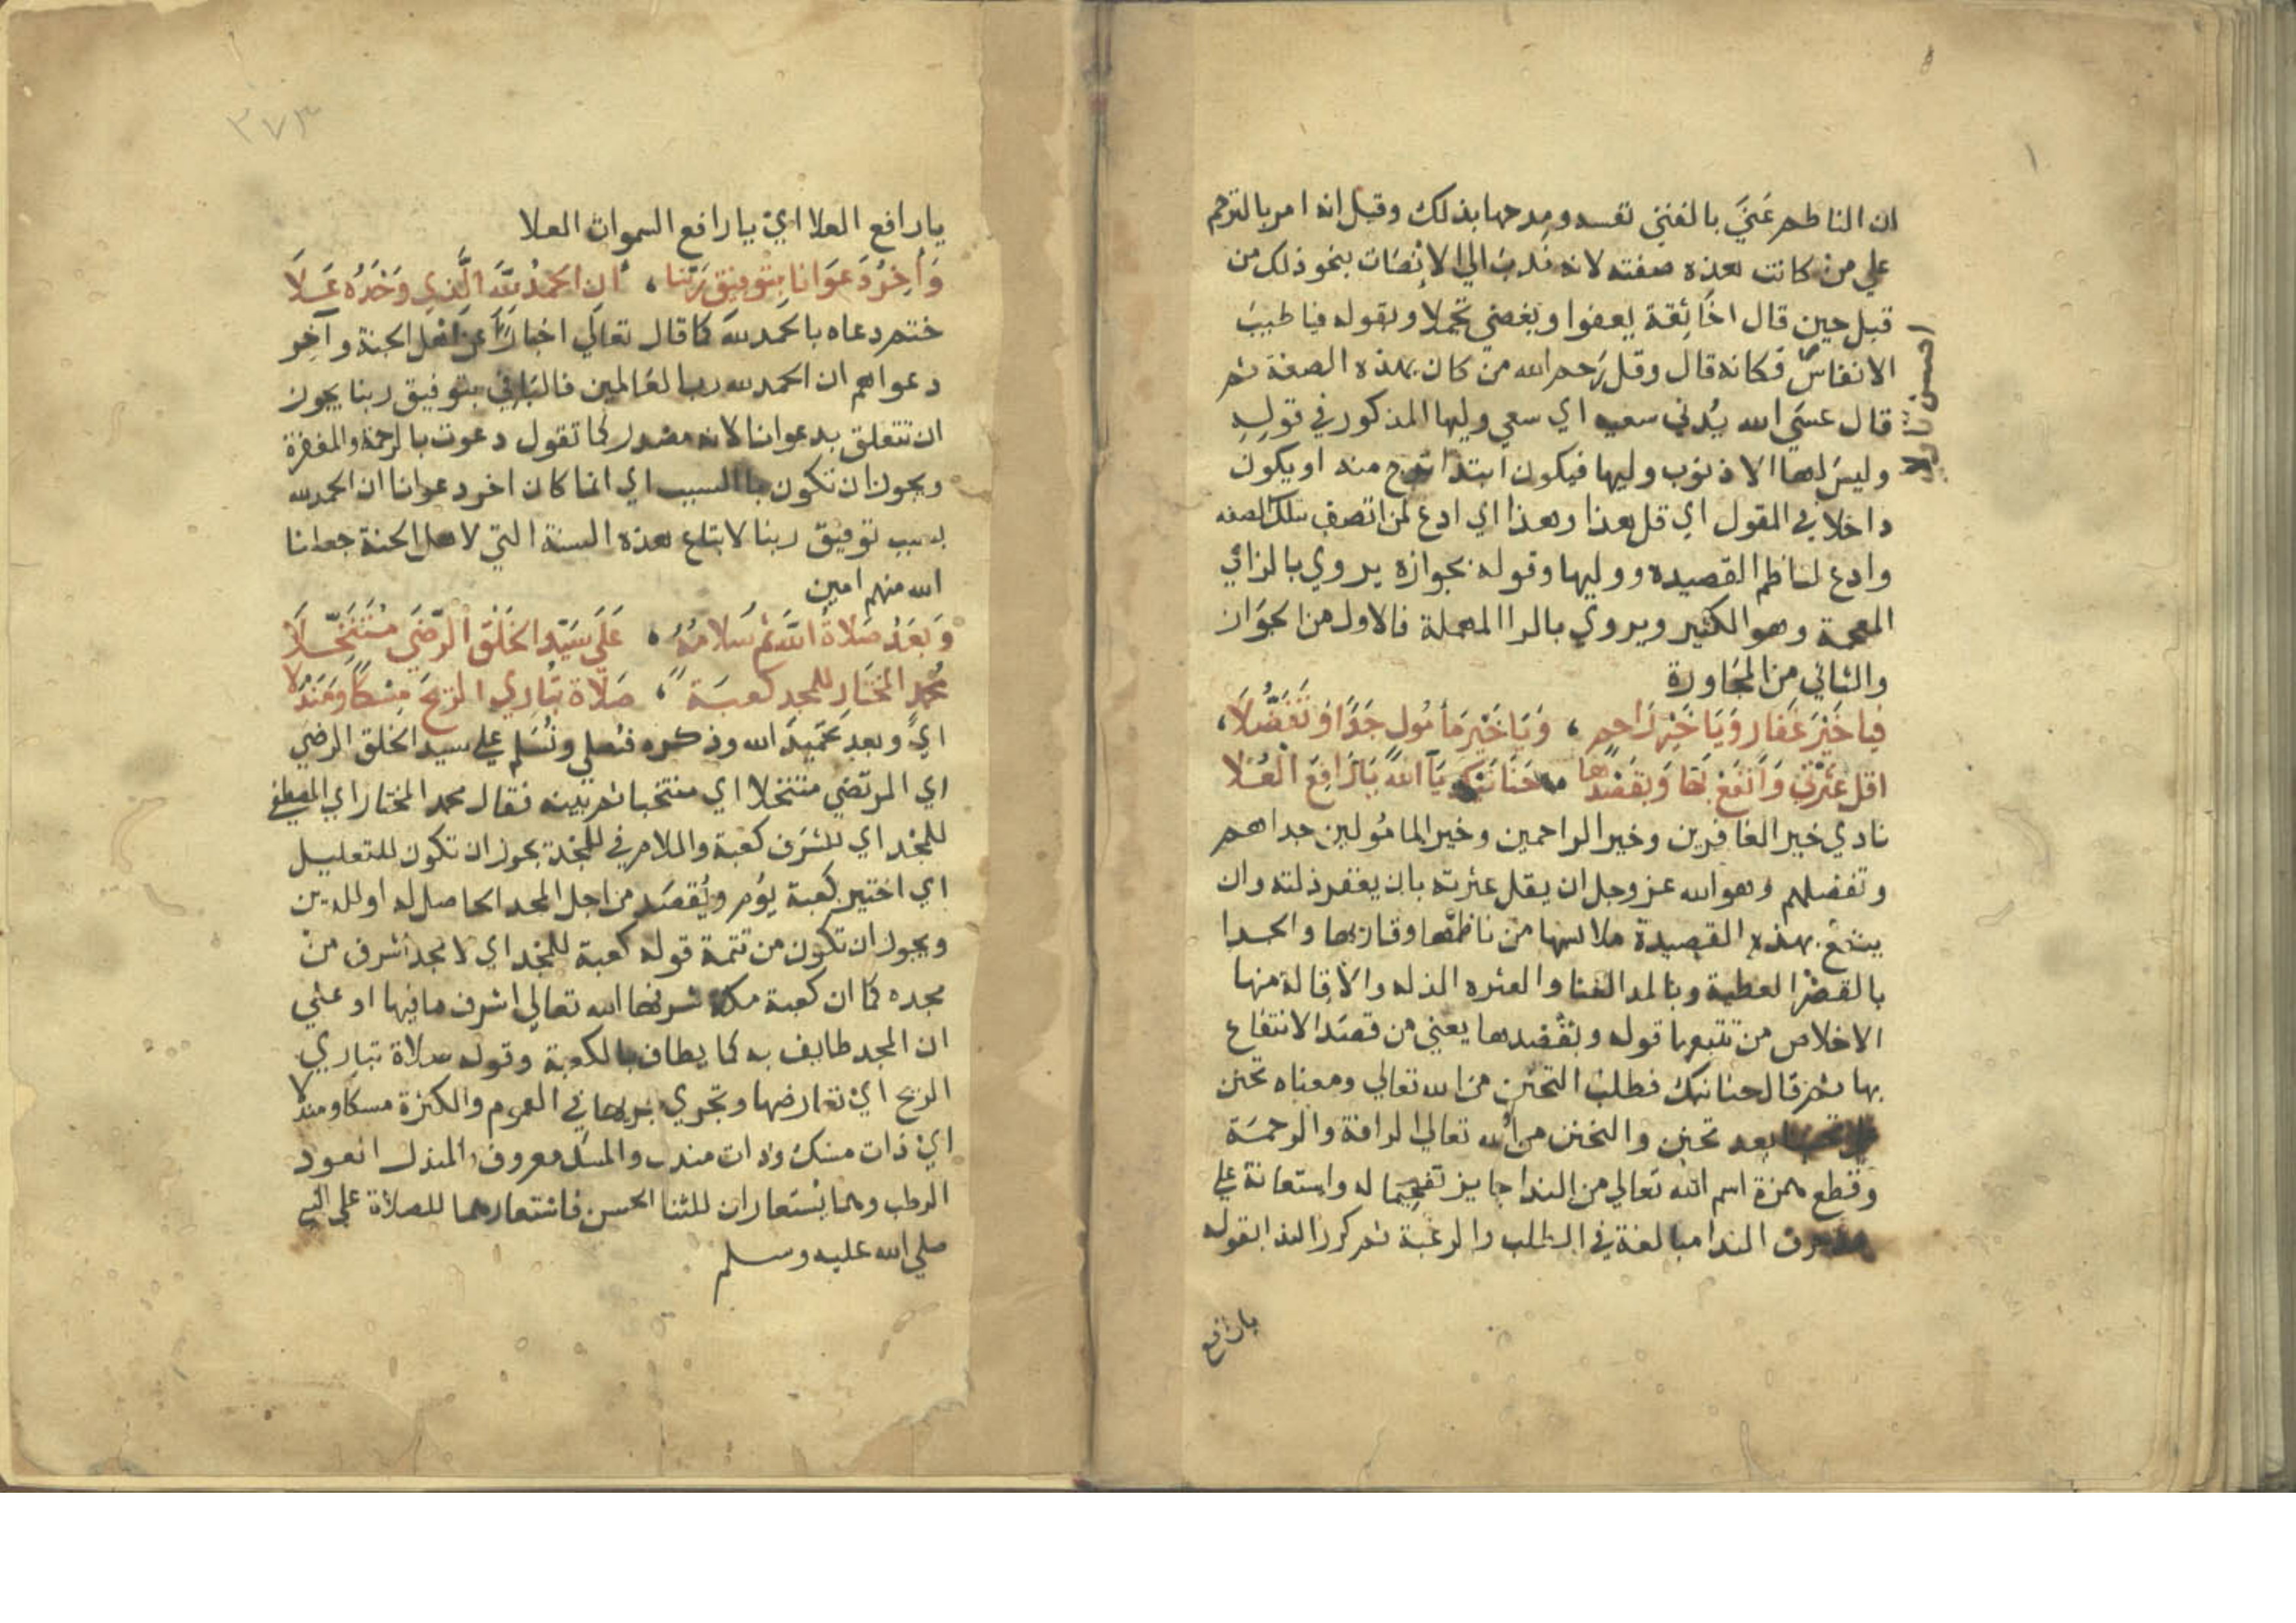 ١
ان الناظم عَنَي بالفتى نفسه ومدحها بذلك وقيل انه امر بالترحم
علي من كانت هذه صفته لانه نَدبَ الي الانصَات بنحو ذلك من
قبل حين قال اخَاثِقة يعفوا ويُغضي تجملا وبقوله فيا طيبَ
الانفاس فكانه قال وقل رَحم الله من كان بهذه الصفة ثم
احسن تاولا
قال عسَي الله يُدني سعيه اي سعي وليها المذكور في قولِهِ
وليسَ لها الا ذنوب وليها فيكون ابتدا منه او يكون
داخلا في المقول اي قل هذا وهذا اي ادع لمن اتصف بتلك الصفه
وادع لناظم القصيده ووليها وقوله بجوازه يروي بالزائي
المعجمة وهو الكثير ويروي بالرا المهملة فالاول من الجوَاز
والثاني من المجَاورة
فيا خَيْرَ غَفار وَيَا خَيْرَ رَاحِمٍ ، وَيَا خَيْرَ مَأمُولٍ جَدًا وَتَفَضُّلاَ ،
اقل عَثرَتي وَانفَعْ بهَا وَبقَصْدِها حَنَانَيْكَ يَا اَللهُ يَا رَافِعَ الْعُلاَ
نادي خير الغافرين وخير الراحمين وخير المامُولين جداهم
وتفضلهم وهو الله عز وجل ان يقل عثرته بان يغفر ذلته وان
ينفع بهذه القصيدة ملابسها من ناظمها وقاربها والجدا
بالقصر العطية وبالمد الغنا والعثره الذله والاقالة منها
الاخلاص من تتبعها قوله وبقصدها يعني من قصَدَ الانتفاع
بها ثم قال حنانيك فطلب التحنن من الله تعالي ومعناه تحنن
بعد تحنن والتحنن من الله تعالي الرافة والرحمَة
وقطع همزة اسم الله تعالي من الندا جايز تفخيما له واستعانة علي
الندا مبالغة في الطلب والرغبة ثم كرر الندا بقوله
يا رافع
٣٧٣
يا رافع العلا اي يا رافع السموات العلا
وَأخِرُ دَعوَانا بِتوفيق رَبِّنا ، أن الحمدُ للّهِ الَّذِي وَحْدَهُ عَلاَ
ختم دعاه بالحمد لله كما قال تعالي اخبارًا عن اهل الجنة وآخِر
دعواهم ان الحمد لله رب العَالمين فالبَا في بتوفيق ربنا يجوز
ان تتعلق بدعوانا لانه مصدر كما تقول دعوت بالرحمة والمغفرة
ويجوز ان تكون با السبب اي انما كان اخر دعوانا ان الحمد لله
بسبب توفيق ربنا لاتباع هذه السنة التي لاهل الجنة جعلنا
الله منهم امين
وَبَعْدُ صَلاةُ اللّهِ ثمَّ سَلامُهُ ، عَلَي سَيّدِ الخَلْقِ الرّضَي مُتَنَخَّلاَ
مُحمّدٍ المُختَارِ للمجدِ كعبَة ، صَلاة تُبَارِي الرّيحَ مِسْكاً وَمَندَلاَ
اي وبعد تحميد الله وذكره فنصلي ونُسَلم علي سيد الخلق الرضي
اي المرتضي متنخلا اي منتخبا ثم بينه فقال محمد المختار اي المصطفي
للمجْد اي للشرَف كعبة واللام في للمجْد يجوز ان تكون للتعليل
اي اختير كعبة يوُم ويُقصَد من اجل المجد الحاصل له اوللدين
ويجوز ان تكون من تتمة قوله كعبة للمجْد اي لا مجد اشرف من
مجده كما ان كعبة مكة شرفها الله تعالي اشرف ما فيها او علي
ان المجد طايف به كما يطاف بالكعبة وقوله صلاة تباري
الريح اي تعارضها وتجري جريها في العموم والكثرة مسكا ومندلا
اي ذات مسك وذات مندل والمسك معروف والمندل العود
الرطب وهما يُستعاران للثنا الحسن فاستعارهما للصلاة علي النبي
صلي الله عليه وسلم